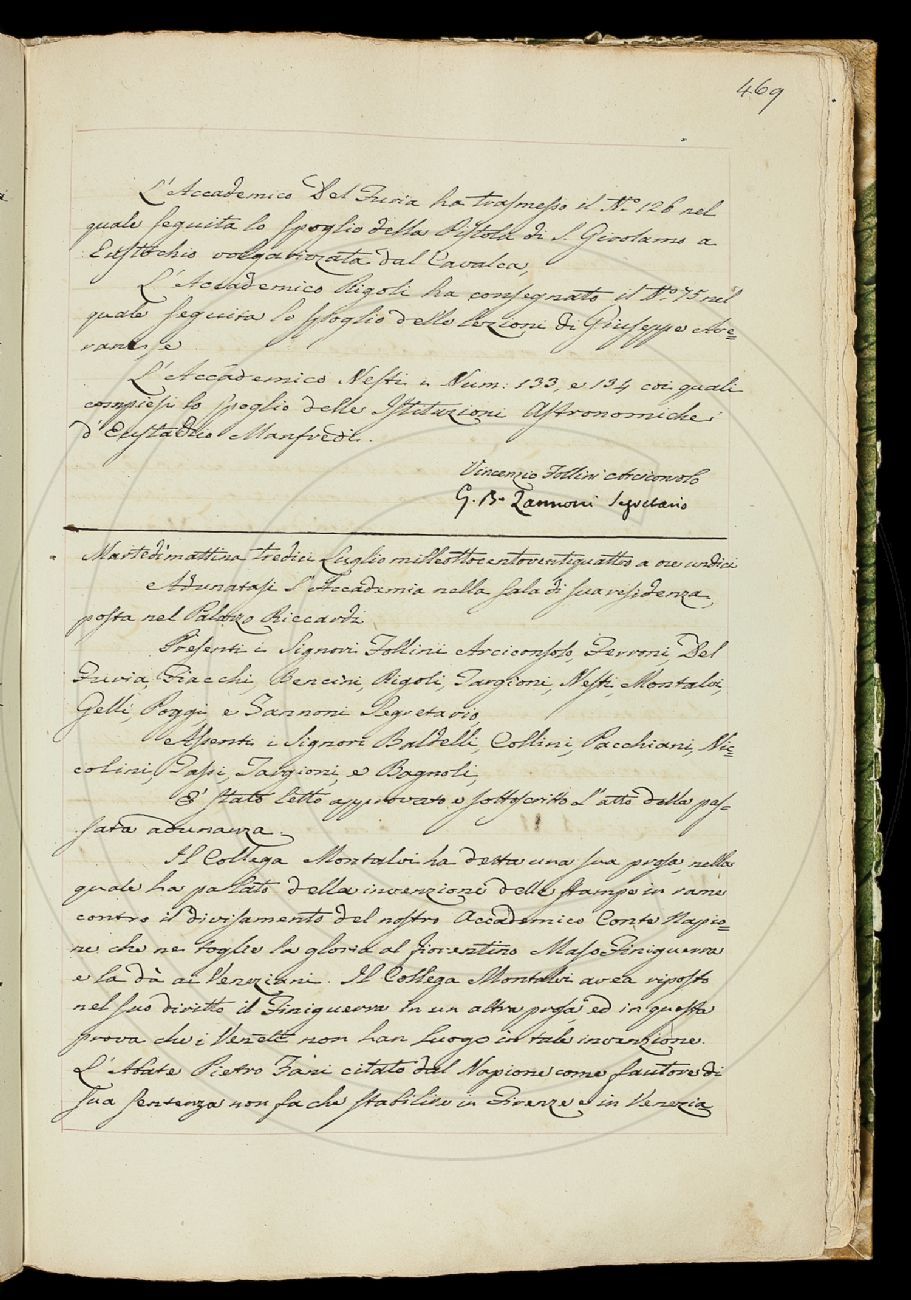 469
L'Accademico Del Furia ha trasmesso il N.o 126 nel
quale seguita lo spoglio della Pistola di S. Girolamo a
Eustochio volgarizzata dal Cavalca,
L'Accademico Rigoli ha consegnato il N.o 75 nel
quale seguita lo spoglio delle Lezioni di Giuseppe Ave=
rani, e
L'Accademico Nesti i Num: 133 e 134 coi quali
compiesi lo spoglio delle Istituzioni Astronomiche
d'Eustachio Manfredi.
Vincenzio Follini Arciconsolo
G. B. Zannoni Segretario
Martedì mattina tredici Luglio milleottocentoventiquattro a ore undici
Adunatasi l'Accademia nella sala di sua residenza
posta nel Palazzo Riccardi
Presenti i Signori Follini Arciconsolo, Ferroni, Del
Furia, Fiacchi, Bencini, Rigoli, Targioni, Nesti, Montalvi,
Gelli, Poggi, e Zannoni Segretario,
Assenti i Signori Baldelli, Collini, Pacchiani, Nic=
colini, Passi, Targioni, e Bagnoli,
E' stato letto approvato e sottoscritto l'atto della pas=
sata adunanza.
Il Collega Montalvi ha detta una sua prosa, nella
quale ha parlato della invenzione delle stampe in rame
contro il divisamento del nostro Accademico Conte Napio=
ne che ne toglie la gloria al fiorentino Maso Finiguerra
e la dà ai Veneziani. Il Collega Montalvi avea riposto
nel suo diritto il Finiguerra in un altra prosa ed in questa
prova che i Veneti non han luogo in tale invenzione.
L'Abate Pietro Zani citato dal Napione come fautore di
sua sentenza non fa che stabilire in Firenze e in Venezia